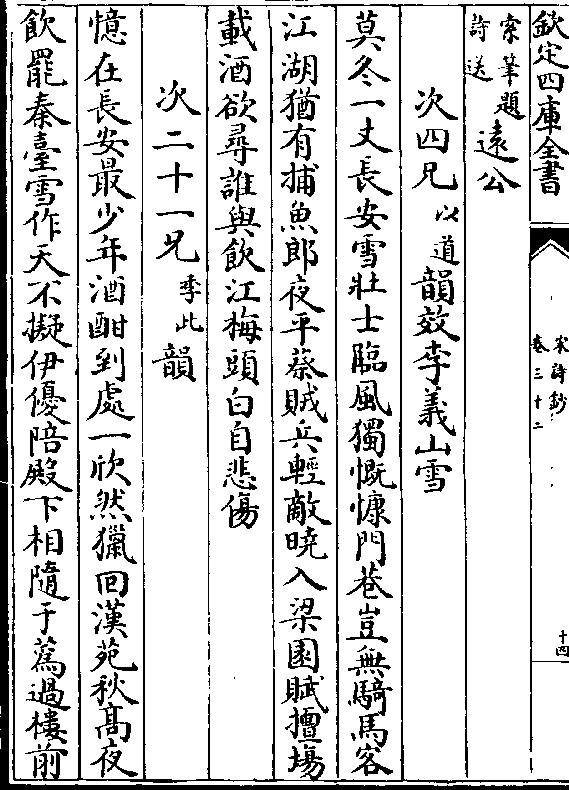 欽定四庫全書
宋詩鈔
卷三十二
十四
索筆題
詩送
遠公
次四兄以道韻效李義山雪
莫冬一丈長安雪壯士臨風獨慨慷門巷豈無騎馬客
江湖猶有捕魚郎夜平蔡賊兵輕敵曉入梁園賦擅場
載酒欲尋誰與飲江梅頭白自悲傷
次二十一兄季此韻
憶在長安最少年酒酣到處一欣然獵回漢苑秋髙夜
飲罷秦臺雪作天不擬伊優陪殿下相隨于蒍過樓前